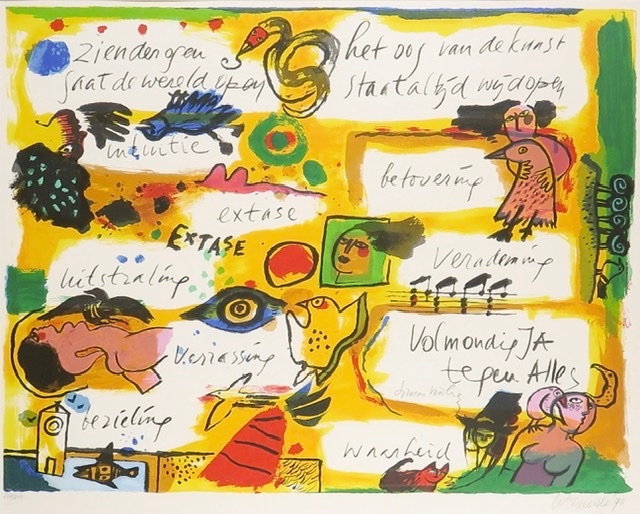 zienderogen
gaat de wereld open
het oog van de kunst
staat altijd wijd open
intuïtie
betovering
extase
EXTASE
verademing
uitstraling
volmondig JA
tegen Alles
verrassing
bezieling
waarheid